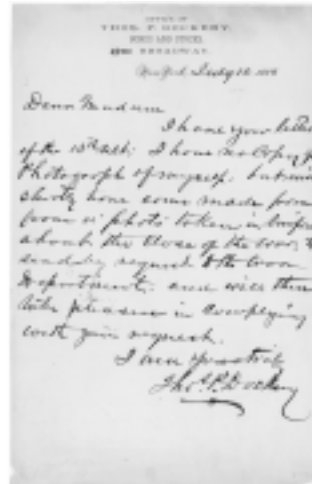 OFFICE OF
THOS. P. DOCKERY,
BONDS AND STOCKS,
BROADWAY.
New York, July 12
Dear Madam
I have your letter
of the 10th ult; I have no copy of
Photograph of myself, but will
shortly have some made from
from a photo taken in uniform
about the close of the war,
Department, and will then
take pleasure in complying
with your request.
I am
Thos. P. Dockery